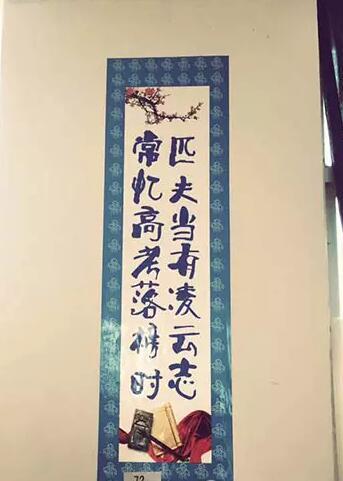 匹夫当有凌云志
常忆高考落榜时
73